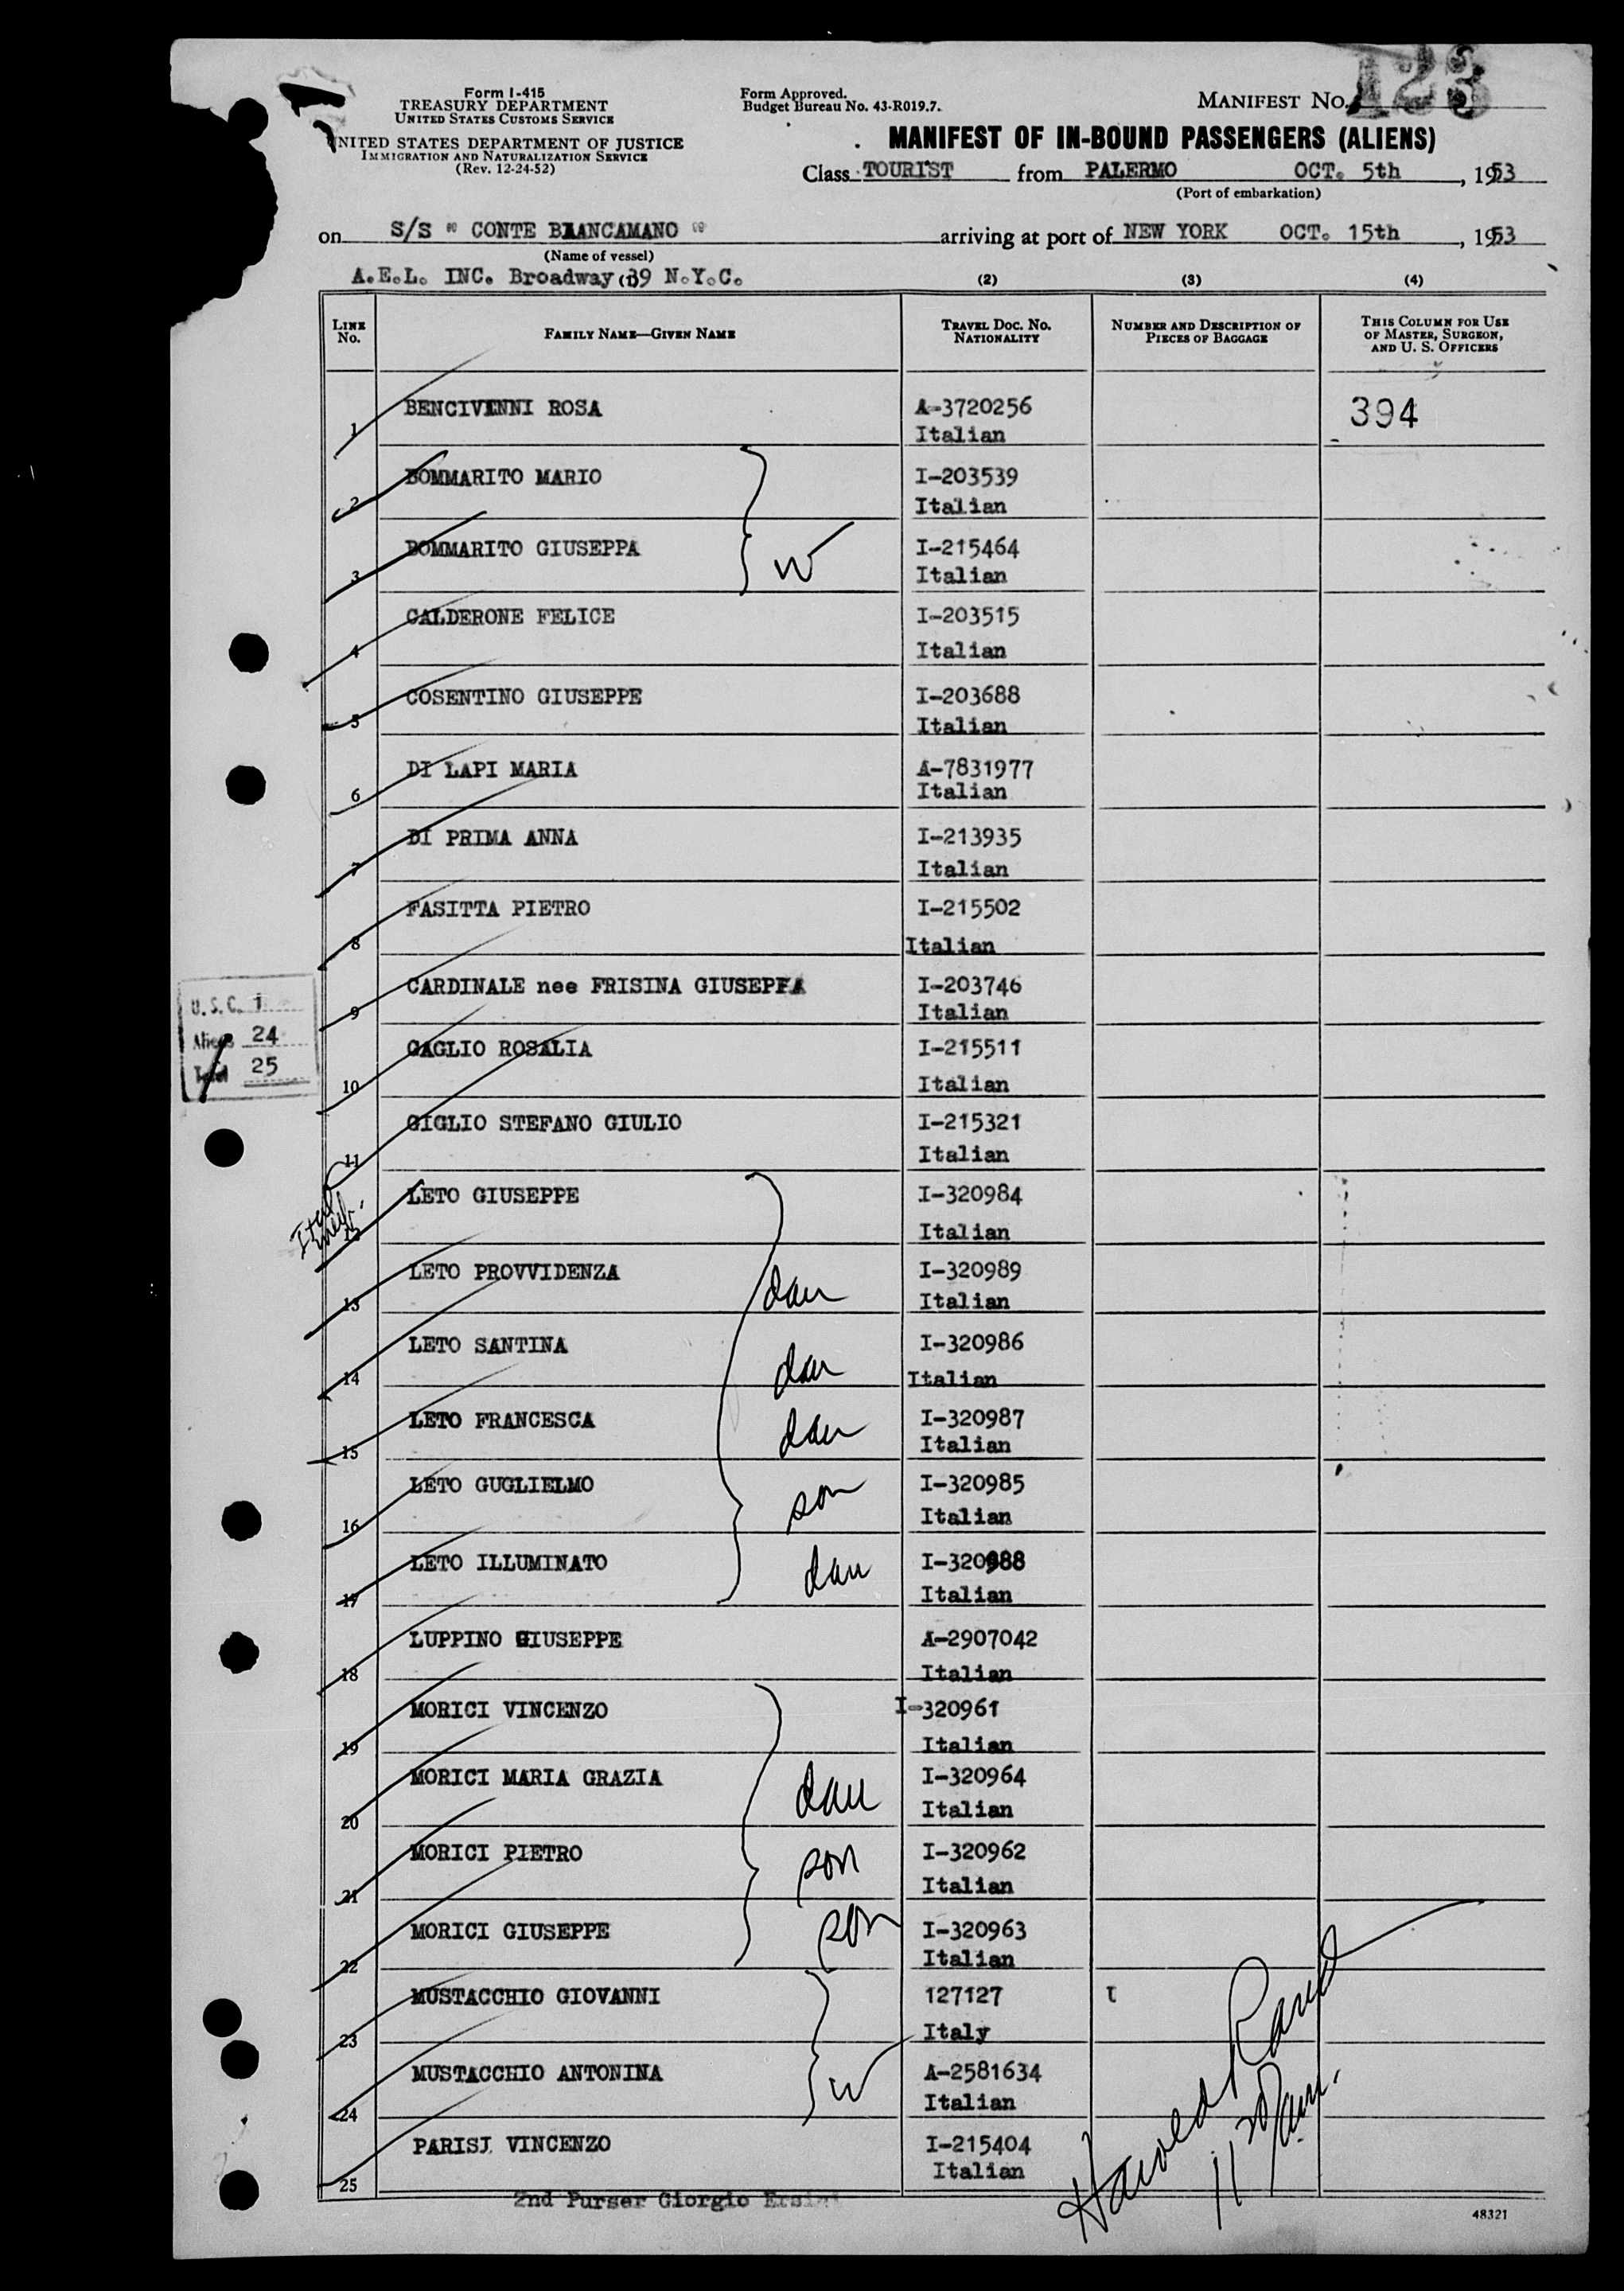 123
Form I-415
TREASURY DEPARTMENT
UNITED STATES CUSTOMS SERVICE
UNITED STATES DEPARTMENT OF JUSTICE
IMMIGRATION AND NATURALIZATION SERVICE
(Rev. 12-24-52)
Form Approved.
Budget Bureau No. 43-R019.7.
MANIFEST NO.
MANIFEST OF IN-BOUND PASSENGERS (ALIENS)
Class TOURIST from PALERMO OCT. 5th, 1953
(Port of embarkation)
on S/S " CONTE BIANCAMANO " arriving at port of NEW YORK OCT. 15th, 1953
(Name of vessel)
A.E.L. INC. Broadway 39 N.Y.C. (1) (2) (3) (4)
LINE No. FAMILY NAME—GIVEN NAME TRAVEL DOC. NO. NATIONALITY NUMBER AND DESCRIPTION OF PIECES OF BAGGAGE THIS COLUMN FOR USE OF MASTER, SURGEON, AND U. S. OFFICERS
1 BENCIVENNI ROSA A-3720256 394
Italian
2 BOMMARITO MARIO I-203539
Italian
3 BOMMARITO GIUSEPPA W I-215464
Italian
4 CALDERONE FELICE I-203515
Italian
5 COSENTINO GIUSEPPE I-203688
Italian
6 DI LAPI MARIA A-7831977
Italian
7 DI PRIMA ANNA I-213935
Italian
8 FASITTA PIETRO I-215502
Italian
9 CARDINALE nee FRISINA GIUSEPPA I-203746
Italian
U.S.C. 1
Aliens 24
Total 25
10 GAGLIO ROSALIA I-215511
Italian
11 GIGLIO STEFANO GIULIO I-215321
Italian
12 LETO GIUSEPPE I-320984
Italian
13 LETO PROVVIDENZA dau I-320989
Italian
14 LETO SANTINA dau I-320986
Italian
15 LETO FRANCESCA dau I-320987
Italian
16 LETO GUGLIELMO son I-320985
Italian
17 LETO ILLUMINATO dau I-320988
Italian
18 LUPPINO GIUSEPPE A-2907042
Italian
19 MORICI VINCENZO I-320961
Italian
20 MORICI MARIA GRAZIA dau I-320964
Italian
21 MORICI PIETRO son I-320962
Italian
22 MORICI GIUSEPPE son I-320963
Italian
23 MUSTACCHIO GIOVANNI 127127
Italy
24 MUSTACCHIO ANTONINA W A-2581634
Italian
25 PARISI VINCENZO I-215404
Italian
2nd Purser Giorgio
Harold
48321